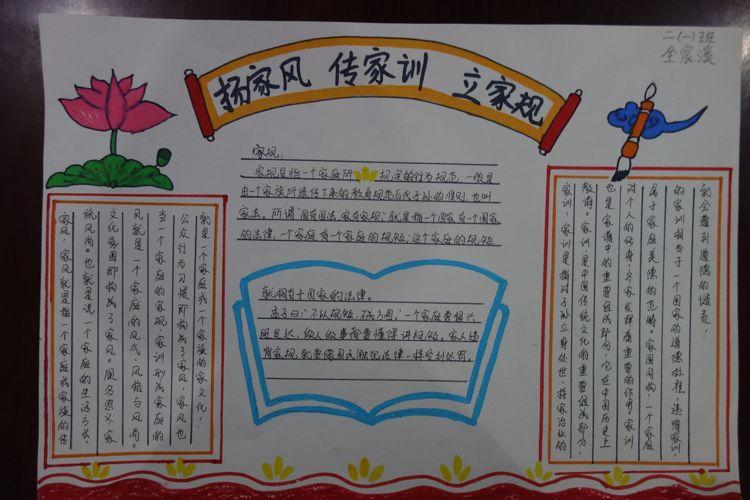 扬家风 传家训 立家规
二(一)班
全宸溪
家规:
家规是指一个家庭所规定的行为规范,一般是
由一个家族所遗传下来的教育规范后代子孙的准则,也叫
家法。所谓“国有国法,家有家规”就是指一个国家有一个国家
的法律,一个家庭有一个家庭的规矩;这个家庭的规矩
就相当于国家的法律。
孟子曰:“不以规矩,不成方圆。”一个家庭要想兴
旺发达,做人做事需要懂得讲规矩。家人违
背家规,就要像国民触犯法律一样受到处罚。
家风:家风就是指一个家庭或家族的传
统风尚。也就是说一个家庭的生活方式、
文化氛围即构成了家风。顾名思义家
风就是一个家庭的风气、风格与风尚。
当一个家庭的家规、家训形成家庭的
公众行为习惯即构成了家风,家风也
就是一个家庭或一个家族的家文化!
家训:家训是指对子孙立身处世、持家治业的
教诲。家训是中国传统文化的重要组成部分,
也是家谱中的重要组成部分,它在中国历史上
对个人的修身、齐家发挥着重要的作用。家训
属于家庭美德的范畴。家国同构,一个家庭
的家训相当于一个国家的道德标准,违背家训,
就会遭到道德的谴责!